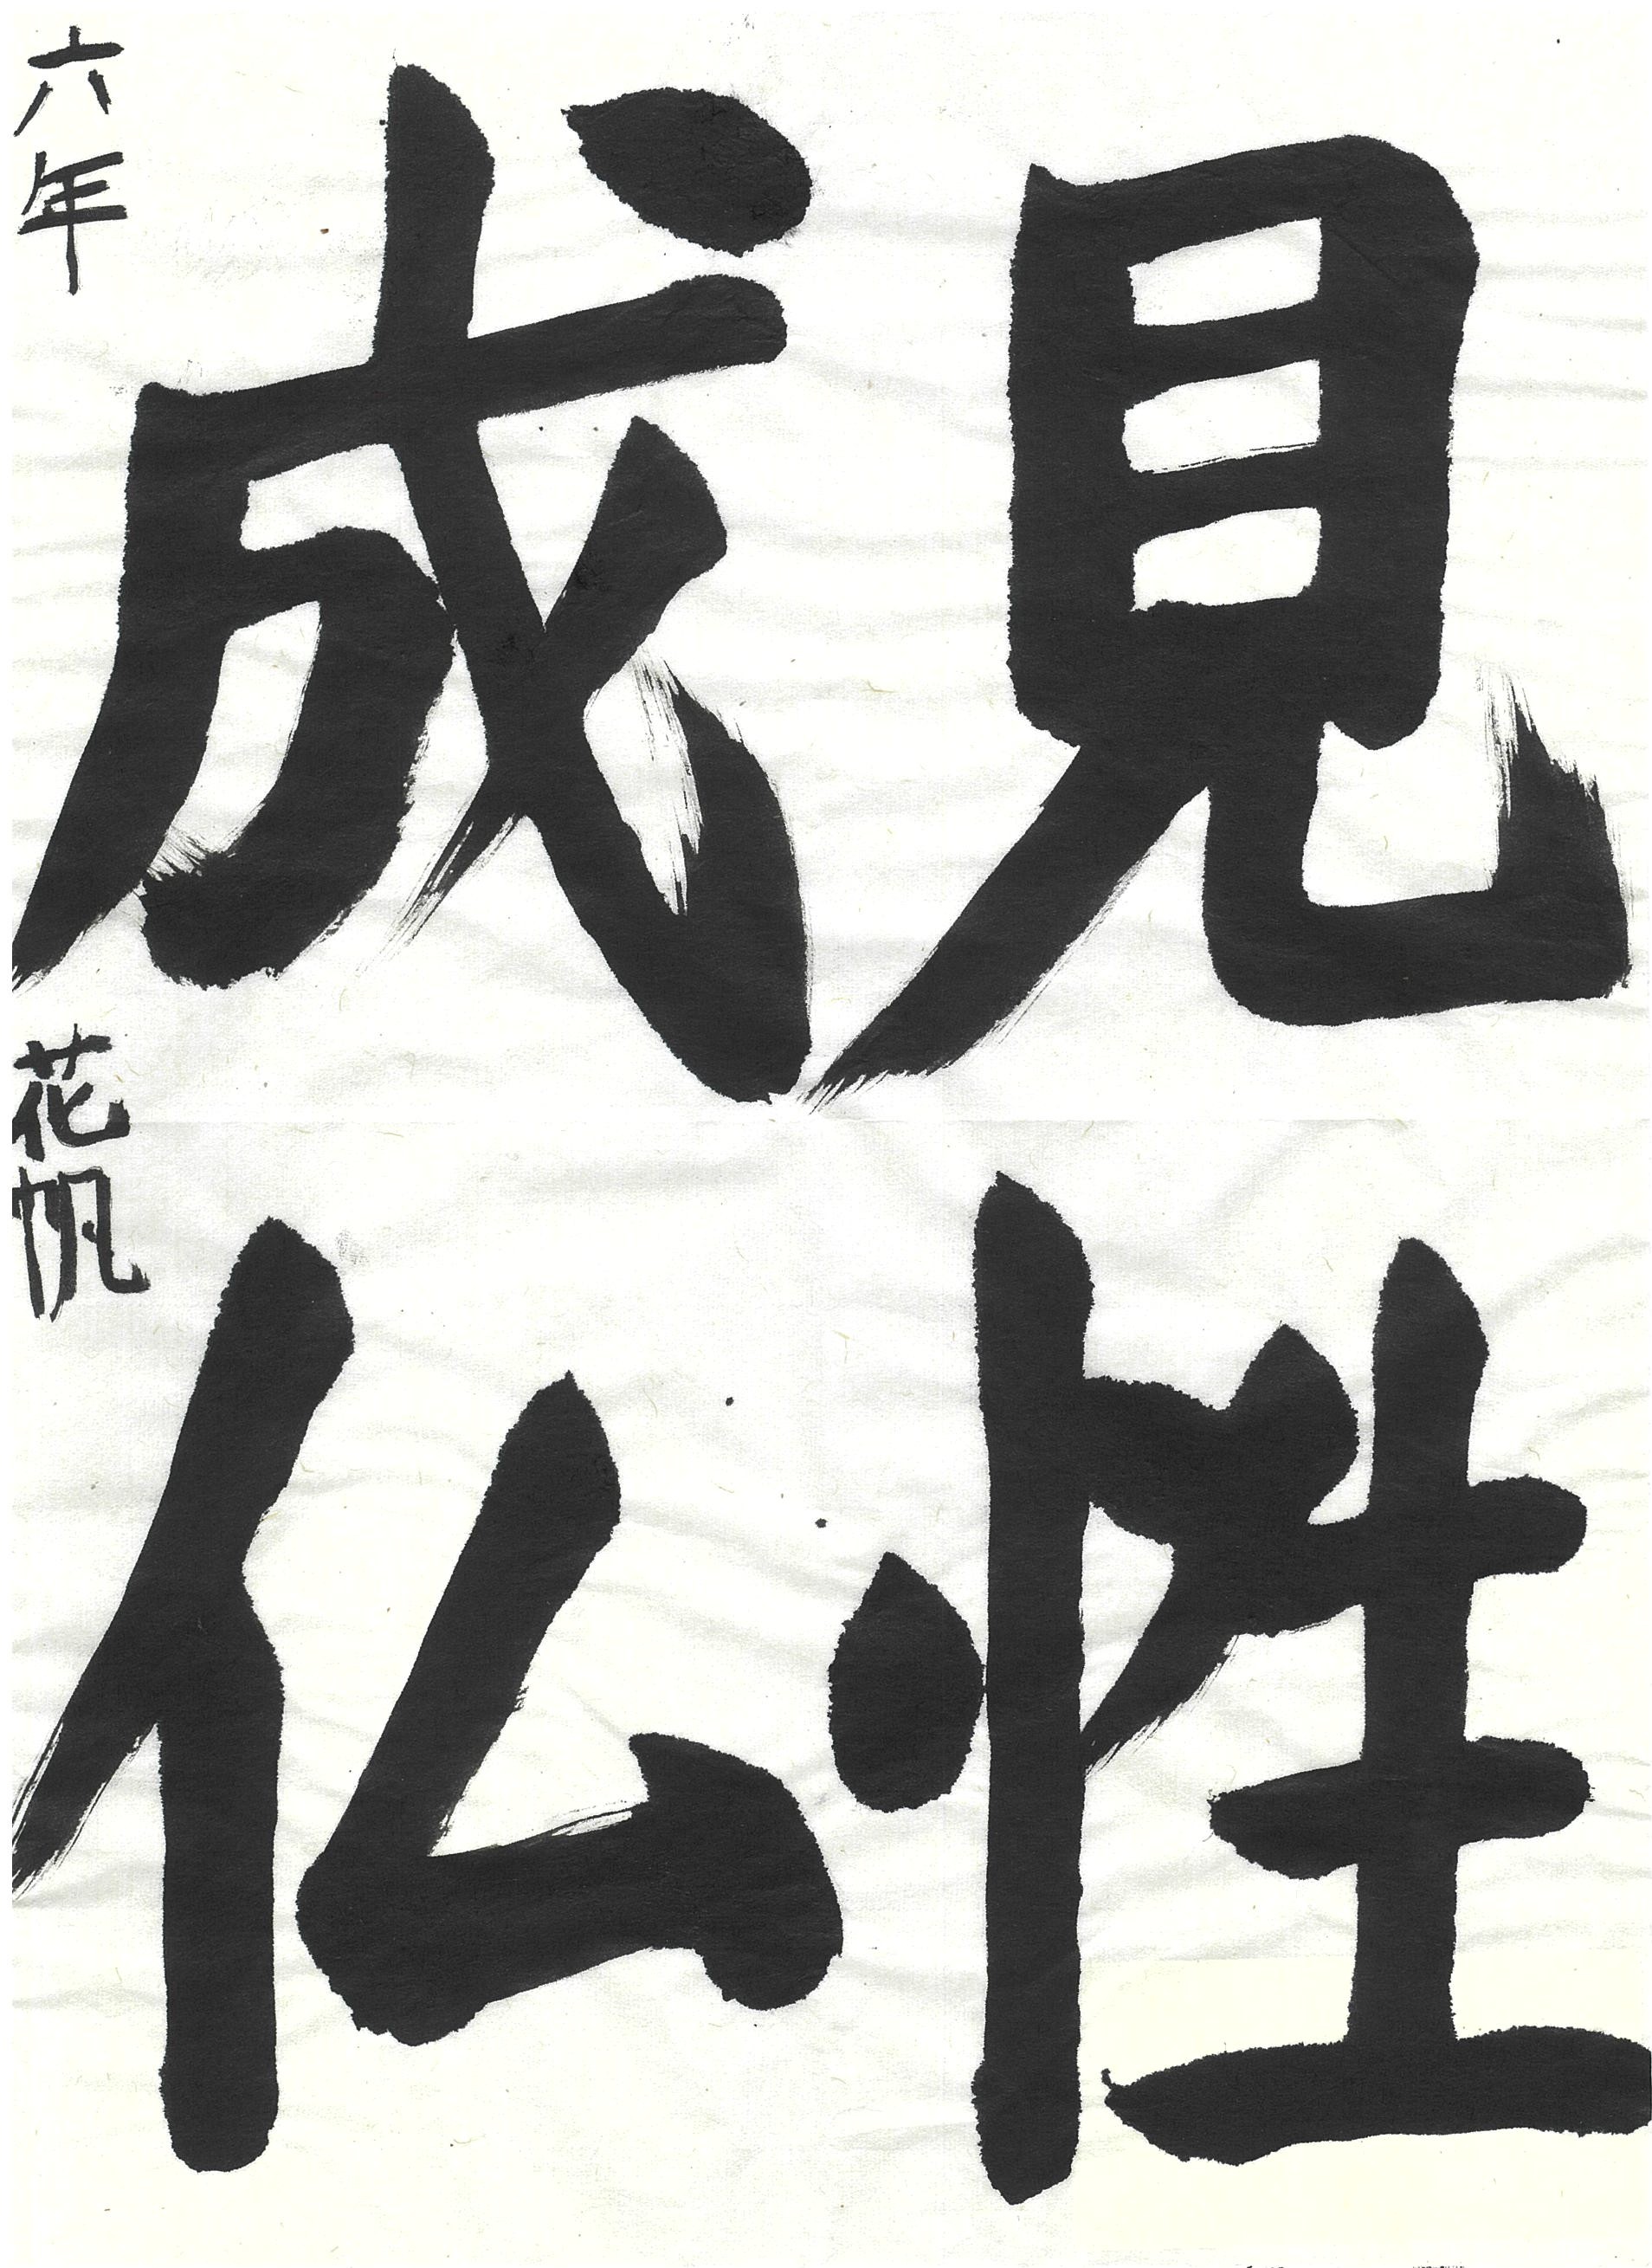 見性
成仏
六年 花帆